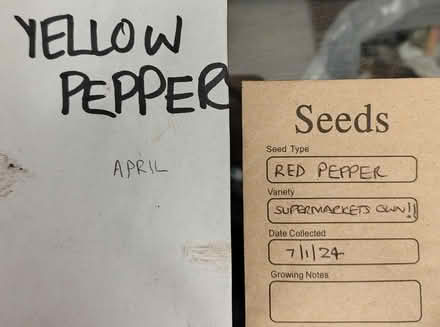 YELLOW
PEPPER
APRIL
Seeds
Seed Type
RED PEPPER
Variety
SUPERMARKETS OWN!!
Date Collected
7/1/24
Growing Notes